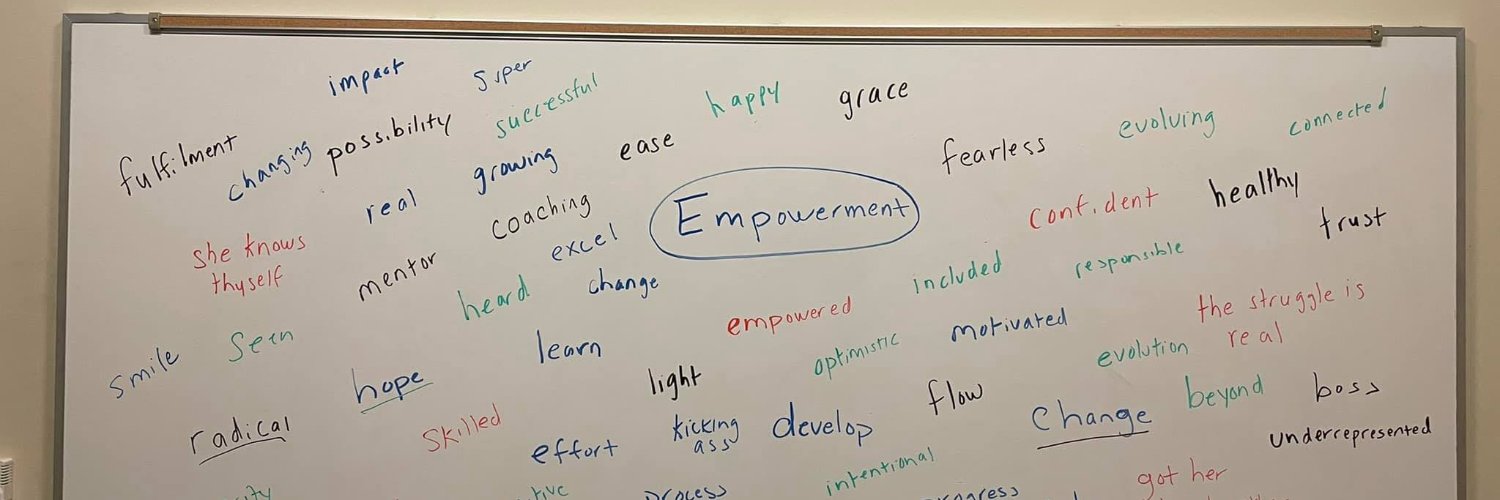 impact
super
successful
happy
grace
fulfilment
changing
possibility
ease
fearless
evolving
connected
real
growing
coaching
Empowerment
confident
healthy
trust
she knows
thyself
mentor
excel
heard
change
empowered
included
responsible
the struggle is
real
smile
Seen
learn
light
optimistic
motivated
evolution
hope
radical
skilled
effort
kicking
ass
develop
flow
Change
beyond
boss
underrepresented
intentional
process
got her